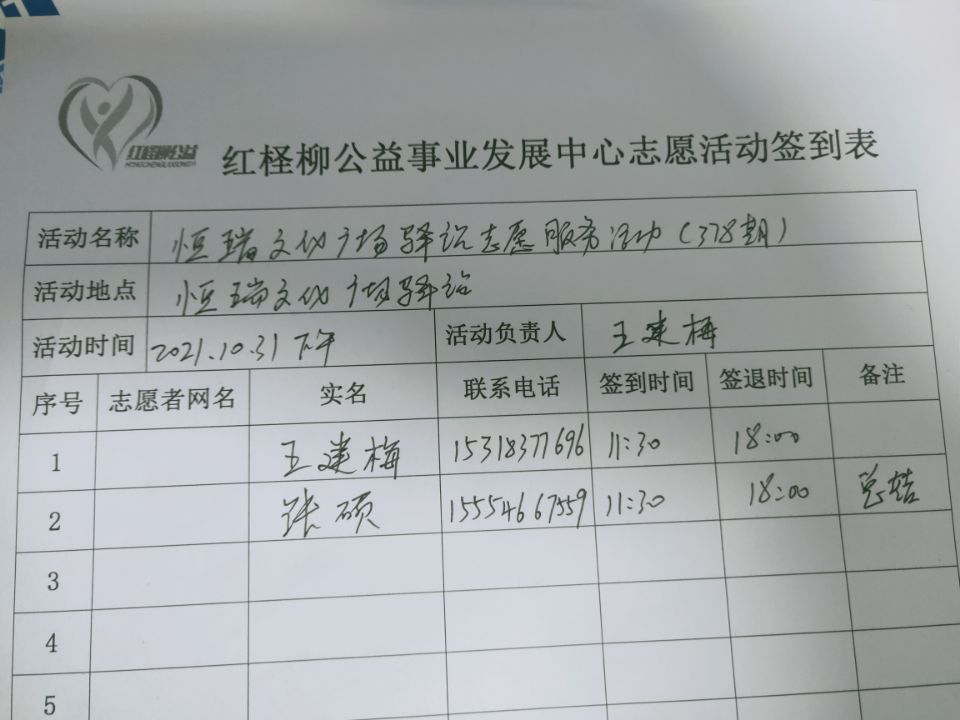 红柽柳公益
HONGCHENGLIUGONGYI
红柽柳公益事业发展中心志愿活动签到表
活动名称 恒瑞文化广场驿站志愿服务活动(378期)
活动地点 恒瑞文化广场驿站
活动时间 2021.10.31下午 活动负责人 王建梅
序号 志愿者网名 实名 联系电话 签到时间 签退时间 备注
1 王建梅 15318377696 11:30 18:00
2 张硕 15554667559 11:30 18:00 总结
3
4
5